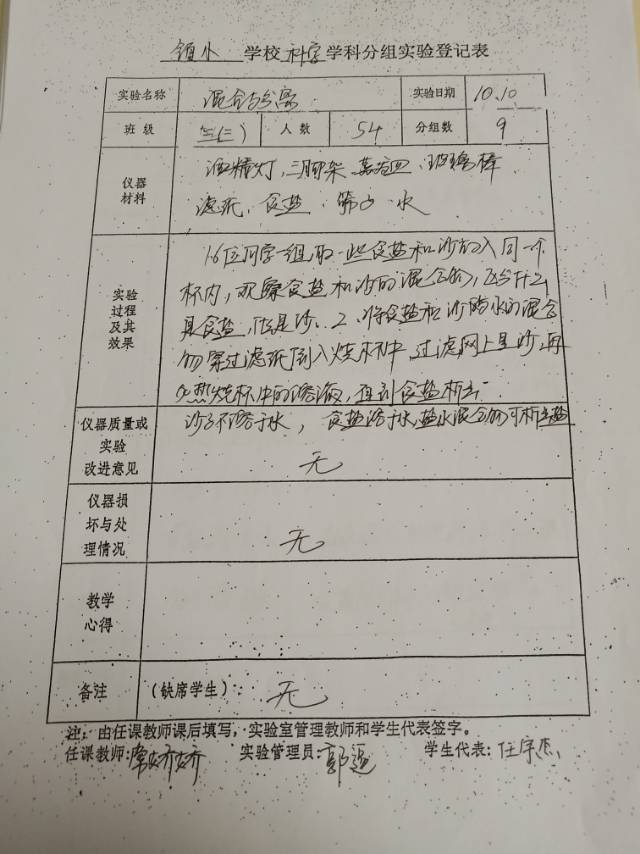 镇小 学校 科学 学科分组实验登记表
实验名称 混合与分离 实验日期 10.10
班级 三(二) 人数 54 分组数 9
仪器材料 酒精灯, 三脚架 蒸发皿 玻璃棒
滤纸、食盐 水
实验过程及其效果 1.6位同学一组,取一些食盐和沙放入同一个
杯内, 观察食盐和沙的混合物,
是食盐, 沙. 2、将食盐和沙 水的混合
物 过滤纸倒入烧杯中, 过滤网上是沙,再
加热烧杯中的溶液, 直到食盐析出
仪器质量或实验改进意见 沙子不溶于水, 食盐溶于水,盐水混合物可析出盐
无
仪器损坏与处理情况 无
教学心得
备注 (缺席学生): 无
注: 由任课教师课后填写, 实验室管理教师和学生代表签字。
任课教师: 实验管理员: 学生代表: